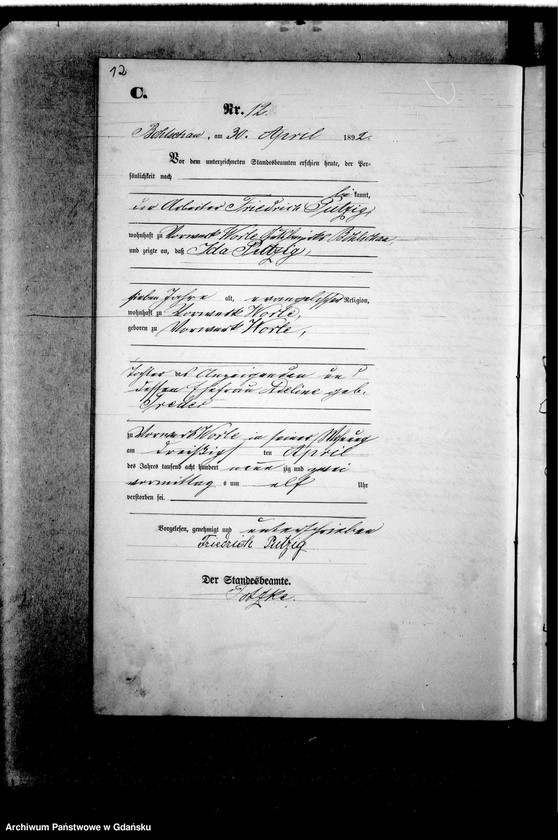 12
C.
Nr. 12.
Bohlschau, am 30. April 1892.
Vor dem unterzeichneten Standesbeamten erschien heute, der Per-
sönlichkeit nach
be kannt,
der Arbeiter Friedrich Putzig,
wohnhaft zu Vorwerk Worle, Bohlschau,
und zeigte an, daß Ida Putzig,
sieben Jahre alt, evangelischer Religion,
wohnhaft zu Vorwerk Worle,
geboren zu Vorwerk Worle,
Tochter des Anzeigenden und
dessen Ehefrau Adeline geb.
zu Vorwerk Worle in seiner Wohnung
am dreißigsten April
des Jahres tausend acht hundert neun zig und zwei
vormittags um elf Uhr
verstorben sei.
Vorgelesen, genehmigt und unterschrieben
Friedrich Putzig
Der Standesbeamte.
Archiwum Państwowe w Gdańsku